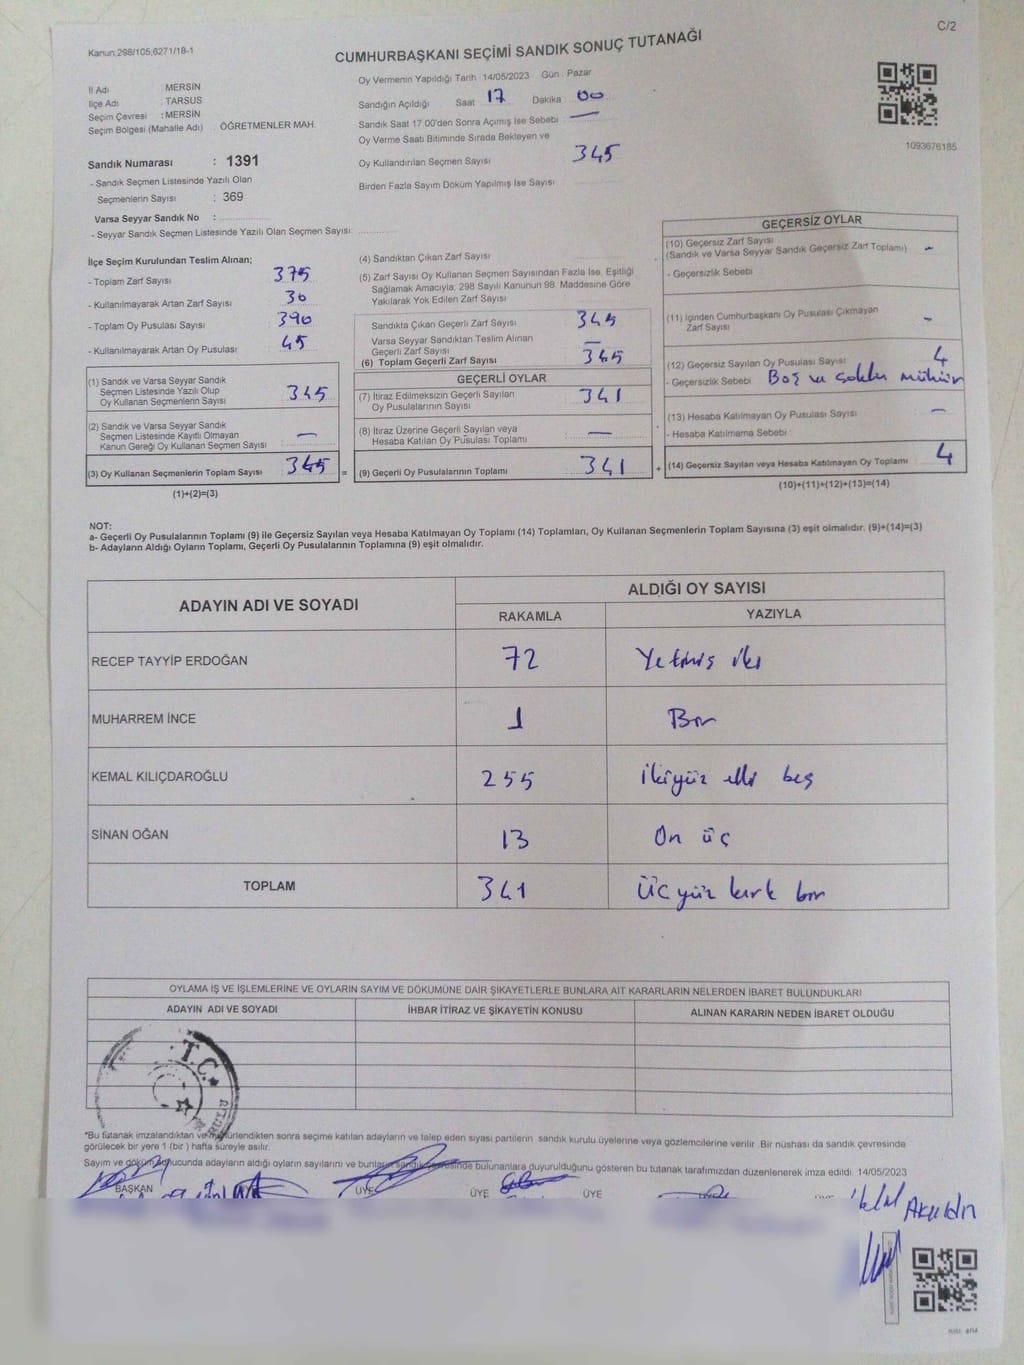 C/2
Kanun:298/105,6271/18-1
CUMHURBAŞKANI SEÇİMİ SANDIK SONUÇ TUTANAĞI
İl Adı MERSİN
İlçe Adı : TARSUS
Seçim Çevresi : MERSİN
Seçim Bölgesi (Mahalle Adı) : ÖĞRETMENLER MAH.
Sandık Numarası : 1391
- Sandık Seçmen Listesinde Yazılı Olan
Seçmenlerin Sayısı : 369
Varsa Seyyar Sandık No :
- Seyyar Sandık Seçmen Listesinde Yazılı Olan Seçmen Sayısı:
Oy Vermenin Yapıldığı Tarih 14/05/2023 Gün : Pazar
Sandığın Açıldığı Saat 17 Dakika 00
Sandık Saat 17.00'den Sonra Açımış İse Sebebi : —
Oy Verme Saati Bitiminde Sırada Bekleyen ve
Oy Kullandırılan Seçmen Sayısı 345
Birden Fazla Sayım Döküm Yapılmış İse Sayısı
1093676185
İlçe Seçim Kurulundan Teslim Alınan;
- Toplam Zarf Sayısı : 375
- Kullanılmayarak Artan Zarf Sayısı : 30
- Toplam Oy Pusulası Sayısı : 390
- Kullanılmayarak Artan Oy Pusulası : 45
(1) Sandık ve Varsa Seyyar Sandık
Seçmen Listesinde Yazılı Olup
Oy Kullanan Seçmenlerin Sayısı : 345
(2) Sandık ve Varsa Seyyar Sandık
Seçmen Listesinde Kayıtlı Olmayan
Kanun Gereği Oy Kullanan Seçmen Sayısı : —
(3) Oy Kullanan Seçmenlerin Toplam Sayısı : 345 =
(1)+(2)=(3)
(4) Sandıktan Çıkan Zarf Sayısı :
(5) Zarf Sayısı Oy Kullanan Seçmen Sayısından Fazla İse, Eşitliği
Sağlamak Amacıyla; 298 Sayılı Kanunun 98. Maddesine Göre
Yakılarak Yok Edilen Zarf Sayısı :
Sandıkta Çıkan Geçerli Zarf Sayısı : 345
Varsa Seyyar Sandıktan Teslim Alınan
Geçerli Zarf Sayısı : —
(6) Toplam Geçerli Zarf Sayısı : 345
GEÇERLİ OYLAR
(7) İtiraz Edilmeksizin Geçerli Sayılan
Oy Pusulalarının Sayısı : 341
(8) İtiraz Üzerine Geçerli Sayılan veya
Hesaba Katılan Oy Pusulası Toplamı : —
(9) Geçerli Oy Pusulalarının Toplamı : 341 +
GEÇERSİZ OYLAR
(10) Geçersiz Zarf Sayısı
(Sandık ve Varsa Seyyar Sandık Geçersiz Zarf Toplamı) : —
- Geçersizlik Sebebi
(11) İçinden Cumhurbaşkanı Oy Pusulası Çıkmayan
Zarf Sayısı : —
(12) Geçersiz Sayılan Oy Pusulası Sayısı : 4
- Geçersizlik Sebebi : Boş ve çoklu mühür
(13) Hesaba Katılmayan Oy Pusulası Sayısı : —
- Hesaba Katılmama Sebebi :
(14) Geçersiz Sayılan veya Hesaba Katılmayan Oy Toplamı : 4
(10)+(11)+(12)+(13)=(14)
NOT:
a- Geçerli Oy Pusulalarının Toplamı (9) ile Geçersiz Sayılan veya Hesaba Katılmayan Oy Toplamı (14) Toplamları, Oy Kullanan Seçmenlerin Toplam Sayısına (3) eşit olmalıdır. (9)+(14)=(3)
b- Adayların Aldığı Oyların Toplamı, Geçerli Oy Pusulalarının Toplamına (9) eşit olmalıdır.
ADAYIN ADI VE SOYADI ALDIĞI OY SAYISI
RAKAMLA YAZIYLA
RECEP TAYYİP ERDOĞAN 72 Yetmiş iki
MUHARREM İNCE 1 Bir
KEMAL KILIÇDAROĞLU 255 ikiyüz elli beş
SİNAN OĞAN 13 On üç
TOPLAM 341 Üçyüz kırk bir
OYLAMA İŞ VE İŞLEMLERİNE VE OYLARIN SAYIM VE DÖKÜMÜNE DAİR ŞİKAYETLERLE BUNLARA AİT KARARLARIN NELERDEN İBARET BULUNDUKLARI
ADAYIN ADI VE SOYADI İHBAR İTİRAZ VE ŞİKAYETİN KONUSU ALINAN KARARIN NEDEN İBARET OLDUĞU
T.C.
*Bu tutanak imzalandıktan ve mühürlendikten sonra seçime katılan adayların ve talep eden siyasi partilerin sandık kurulu üyelerine veya gözlemcilerine verilir. Bir nüshası da sandık çevresinde
görülecek bir yere 1 (bir ) hafta süreyle asılır.
Sayım ve döküm sonucunda adayların aldığı oyların sayılarını ve bunların sandık çevresinde bulunanlara duyurulduğunu gösteren bu tutanak tarafımızdan düzenlenerek imza edildi. 14/05/2023
BAŞKAN ÜYE ÜYE ÜYE